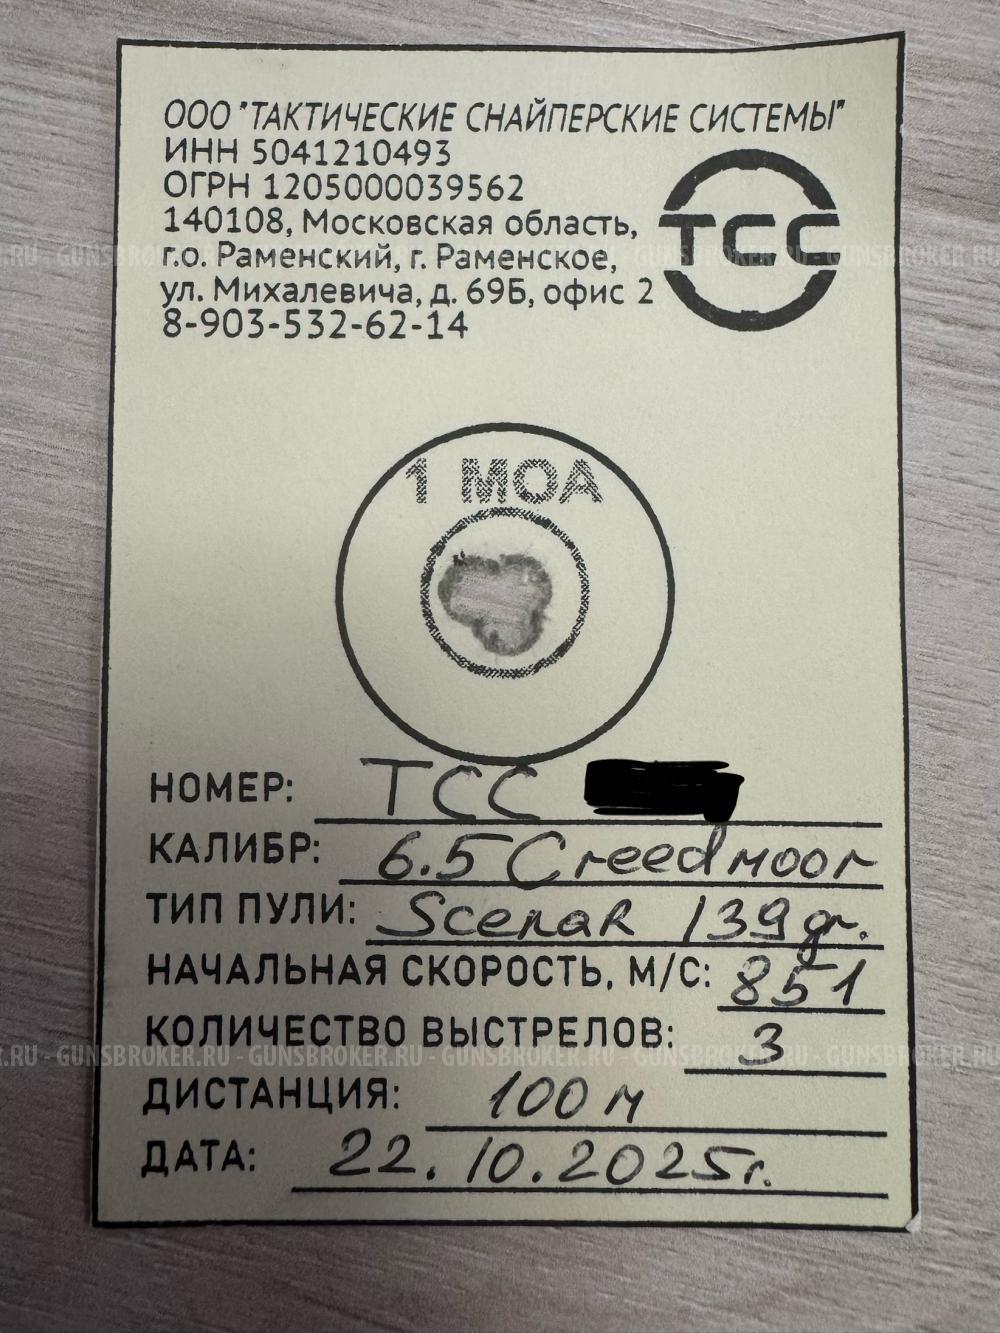 ООО "ТАКТИЧЕСКИЕ СНАЙПЕРСКИЕ СИСТЕМЫ"
ИНН 5041210493
ОГРН 1205000039562
140108, Московская область,
г.о. Раменский, г. Раменское,
ул. Михалевича, д. 69Б, офис 2
8-903-532-62-14
ТСС
.RU - GUNSBROKER.RU - GUNSBROKER.RU - GUNSBROKER.RU - GUNSBROKER.RU - GUNSBROKER.RU
1 МОА
НОМЕР: ТСС
КАЛИБР: 6.5 Creedmoor
ТИП ПУЛИ: Scenar 139 gr.
НАЧАЛЬНАЯ СКОРОСТЬ, М/С: 851
КОЛИЧЕСТВО ВЫСТРЕЛОВ: 3
.RU - GUNSBROKER.RU - GUNSBROKER.RU - GUNSBROKER.RU - GUNSBROKER.RU - GUNSBROKER.RU
ДИСТАНЦИЯ: 100 м
ДАТА: 22.10.2025г.